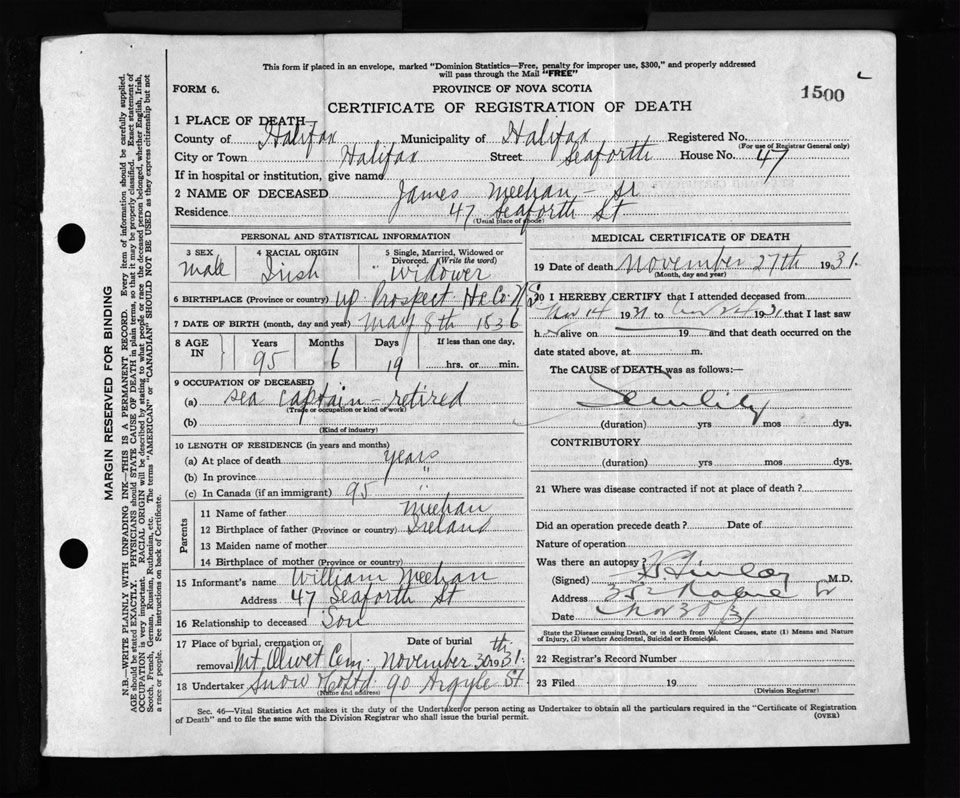 This form if placed in an envelope, marked "Dominion Statistics—Free, penalty for improper use, $300," and properly addressed
will pass through the Mail "FREE"
FORM 6.
PROVINCE OF NOVA SCOTIA
1500
CERTIFICATE OF REGISTRATION OF DEATH
1 PLACE OF DEATH
County of Halifax Municipality of Halifax Registered No.
(For use of Registrar General only)
City or Town Halifax Street Seaforth House No. 47
If in hospital or institution, give name
2 NAME OF DECEASED James Meehan - Sr
Residence 47 Seaforth St
(Usual place of abode)
PERSONAL AND STATISTICAL INFORMATION
3 SEX 4 RACIAL ORIGIN 5 Single, Married, Widowed or
Divorced. (Write the word)
Male Irish " widower
6 BIRTHPLACE (Province or country) Up. Prospect Hx Co NS
7 DATE OF BIRTH (month, day and year) May 8th 1836
8 AGE IN Years Months Days If less than one day,
95 6 19 hrs. or min.
9 OCCUPATION OF DECEASED
(a) Sea captain - retired
(Trade or occupation or kind of work)
(b)
(Kind of industry)
10 LENGTH OF RESIDENCE (in years and months)
(a) At place of death years
(b) In province "
(c) In Canada (if an immigrant) 95 "
Parents
11 Name of father Meehan
12 Birthplace of father (Province or country) Ireland
13 Maiden name of mother
14 Birthplace of mother (Province or country)
15 Informant's name William Meehan
Address 47 Seaforth St
16 Relationship to deceased Son
17 Place of burial, cremation or Date of burial
removal Mt Olivet Cem. November 30th 1931.
18 Undertaker Snow & Co Ltd 90 Argyle St
(Name and address)
MEDICAL CERTIFICATE OF DEATH
19 Date of death November 27th 1931.
(Month, day and year)
20 I HEREBY CERTIFY that I attended deceased from
Nov 14 1931 to Nov 24 1931 that I last saw
h alive on 19 and that death occurred on the
date stated above, at m.
The CAUSE of DEATH was as follows:—
Senility
(duration) yrs mos dys.
CONTRIBUTORY
(duration) yrs mos dys.
21 Where was disease contracted if not at place of death?
Did an operation precede death? Date of
Nature of operation
Was there an autopsy
(Signed) Finlay M.D.
Address 352
Date Nov 30 31
State the Disease causing Death, or in death from Violent Causes, state (1) Means and Nature
of Injury, (2) whether Accidental, Suicidal or Homicidal.
22 Registrar's Record Number
23 Filed 19
(Division Registrar)
Sec. 46—Vital Statistics Act makes it the duty of the Undertaker or person acting as Undertaker to obtain all the particulars required in the "Certificate of Registration
of Death" and to file the same with the Division Registrar who shall issue the burial permit.
(OVER)
MARGIN RESERVED FOR BINDING
N.B.—WRITE PLAINLY WITH UNFADING INK—THIS IS A PERMANENT RECORD. Every item of information should be carefully supplied.
AGE should be stated EXACTLY. PHYSICIANS should STATE CAUSE OF DEATH in plain terms, so that it may be properly classified. Exact statement of
OCCUPATION is very important. RACIAL ORIGIN will be described by stating to what people or race the deceased person belonged, whether English, Irish,
Scotch, French, German, Russian, Ruthenian, etc. The terms "AMERICAN" or "CANADIAN" SHOULD NOT BE USED as they express citizenship but not
a race or people. See instructions on back of Certificate.